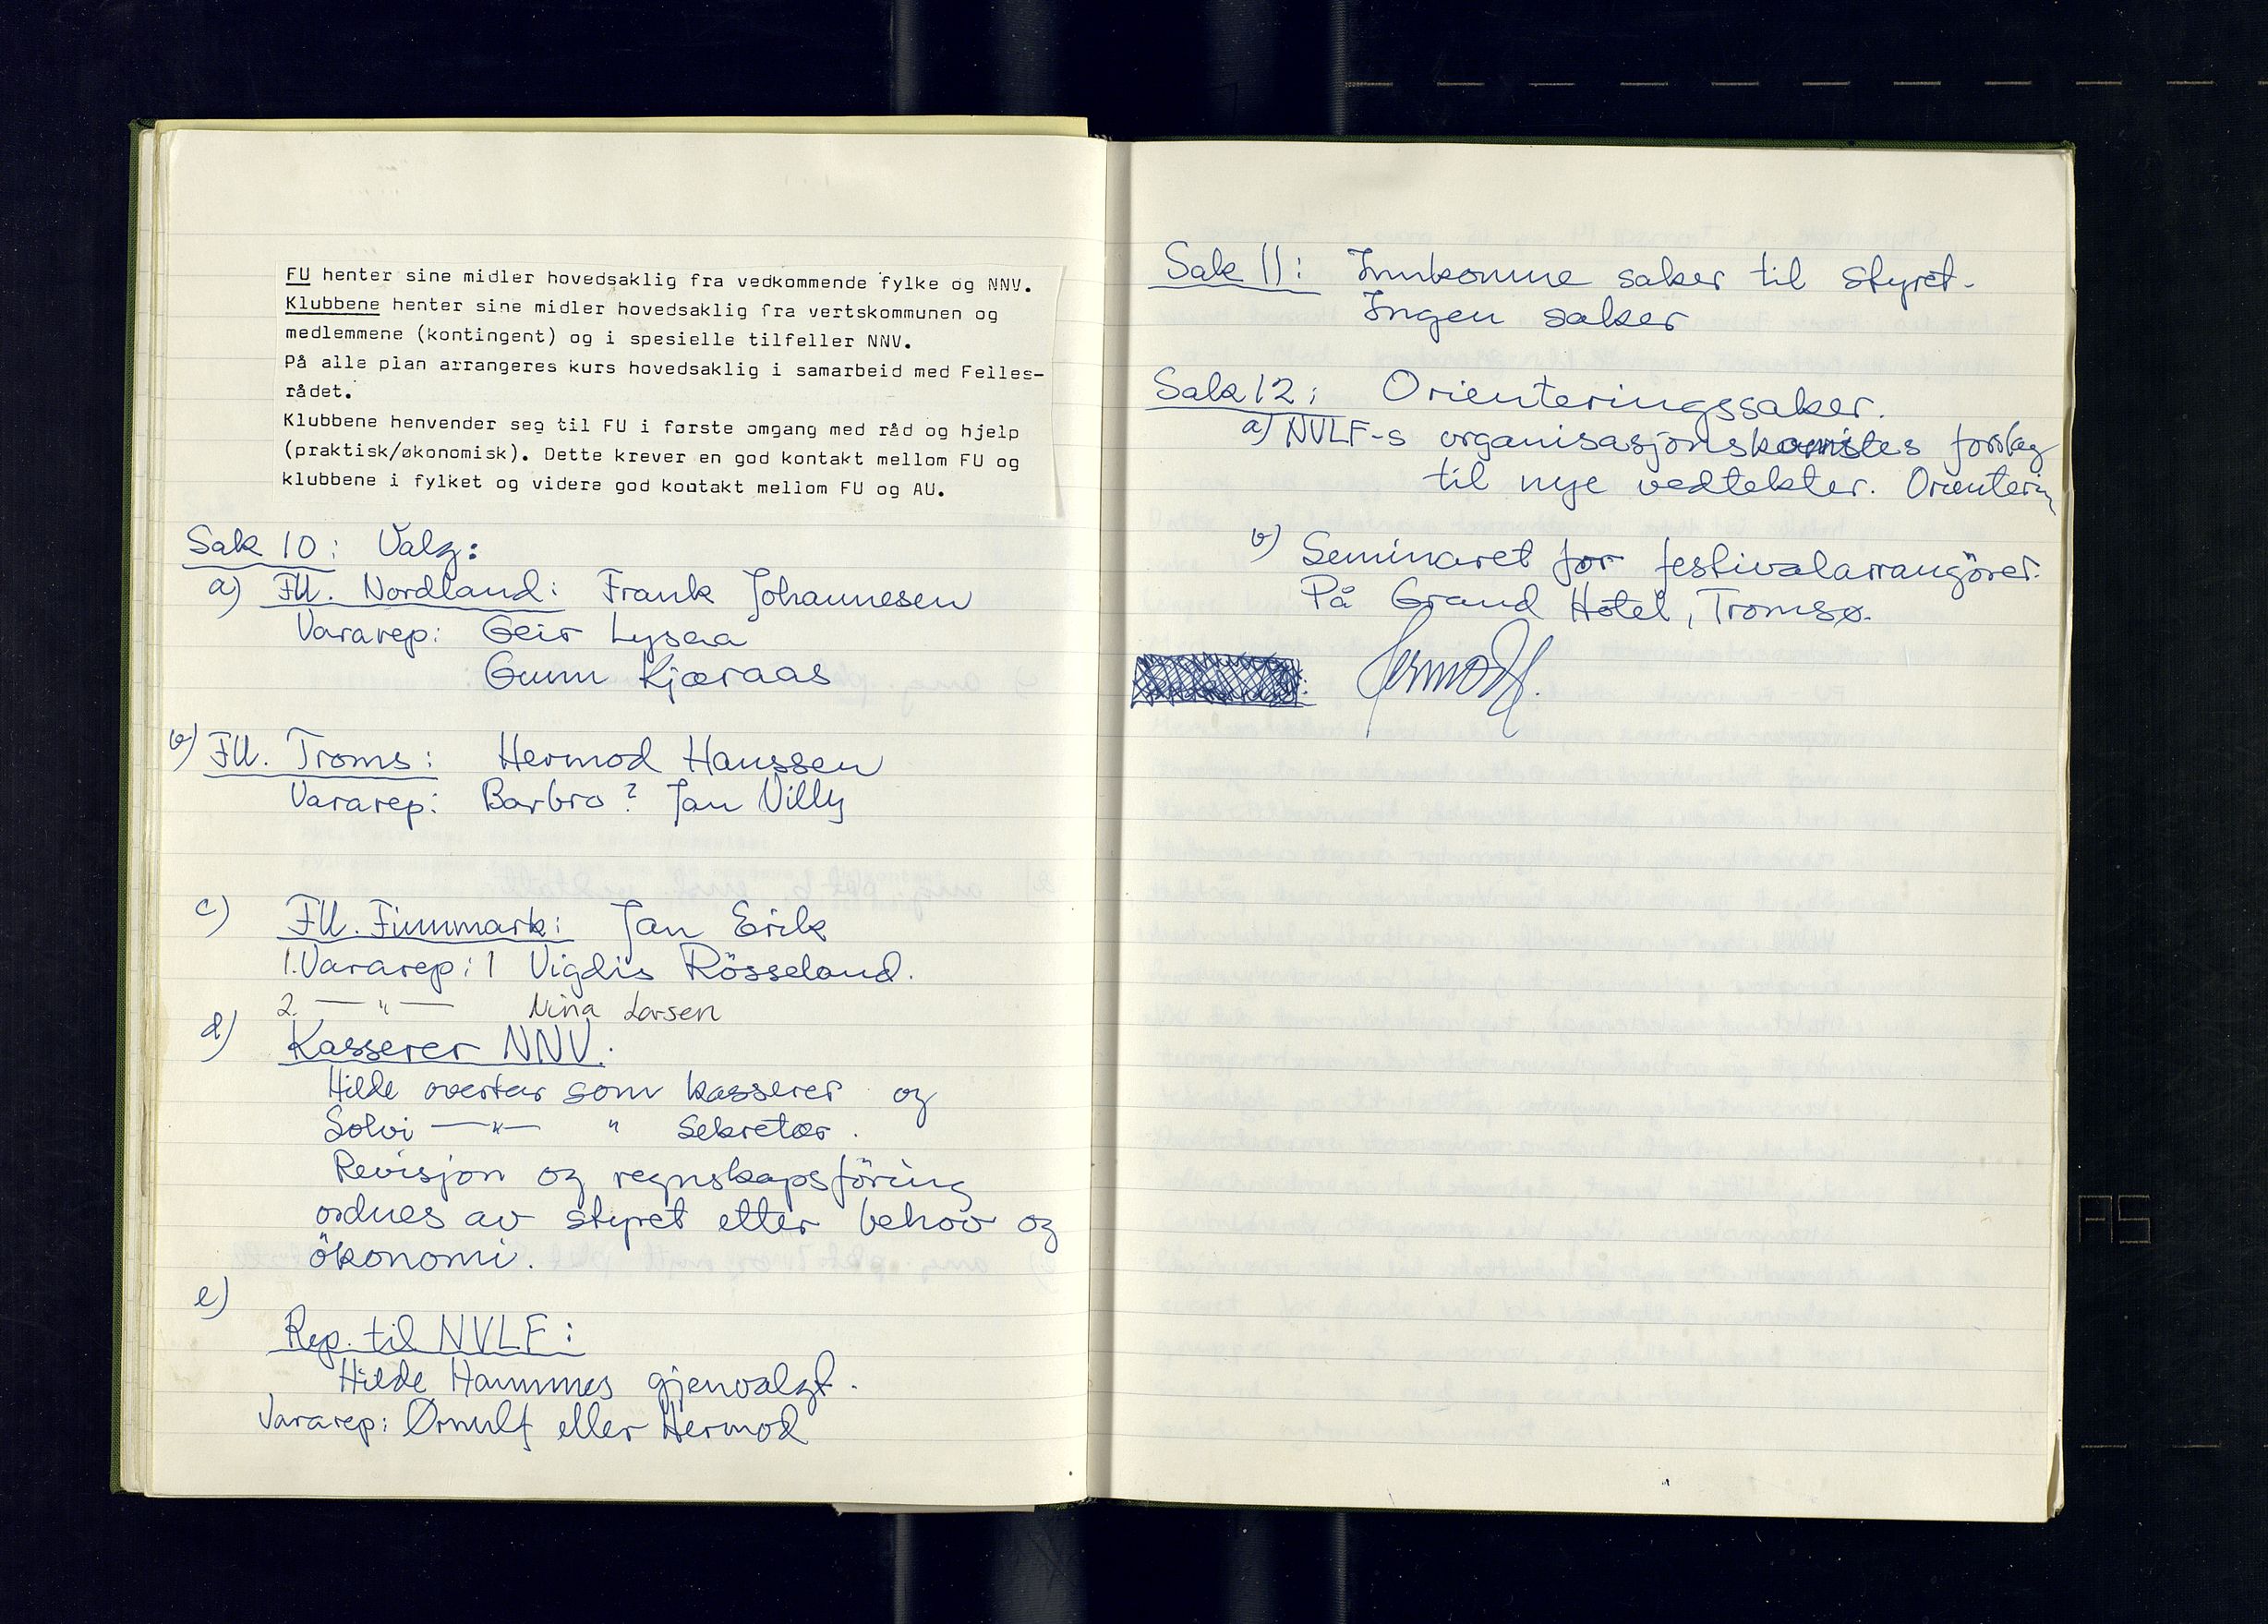 FU henter sine midler hovedsaklig fra vedkommende fylke og NNV.
Klubbene henter sine midler hovedsaklig fra vertskommunen og
medlemmene (kontingent) og i spesielle tilfeller NNV.
På alle plan arrangeres kurs hovedsaklig i samarbeid med Felles-
rådet.
Klubbene henvender seg til FU i første omgang med råd og hjelp
(praktisk/økonomisk). Dette krever en god kontakt mellom FU og
klubbene i fylket og videre god kontakt mellom FU og AU.
Sak 10: Valg:
a) FU. Nordland: Frank Johannesen
Vararep: Geir Lysaa
Gunn Kjæraas
b) FU. Troms: Hermod Hanssen
Vararep: Barbro? Jan Villy
c) FU. Finnmark: Jan Erik
1. Vararep: 1 Vigdis Rösseland.
2. — " — Nina Larsen
d) Kasserer NNV.
Hilde overtar som kasserer og
Solvi — " — " Sekretær.
Revisjon og regnskapsföring
ordnes av styret etter behov og
ökonomi.
e)
Rep. til NVLF:
Hilde Hammnes gjenvalgt.
Vararep: Ørnulf eller Hermod
Sak 11: Innkomne saker til styret.
Ingen saker
Sak 12: Orienteringssaker.
a) NVLF-s organisasjonskomites forslag
til nye vedtekter. Orientering
b) Seminaret for festivalarrangörer.
På Grand Hotel, Tromsø.
Hermod H.